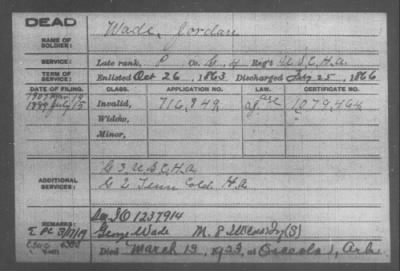 DEAD
NAME OF SOLDIER: Wade, Jordan
SERVICE: Late rank, P Co. G, 3 Reg't U.S.C.H.A.
TERM OF SERVICE: Enlisted Oct 26, 1863 Discharged 25, 1866
DATE OF FILING. CLASS. APPLICATION NO. LAW. CERTIFICATE NO.
1889 July 15 Invalid, 716,949 1079,464
Widow,
Minor,
ADDITIONAL SERVICES: G 3 U.S.C.H.A
G 2 Tenn Cold. H.A
1237914
REMARKS: George Wade
Died March 19, at Osceola, Ark